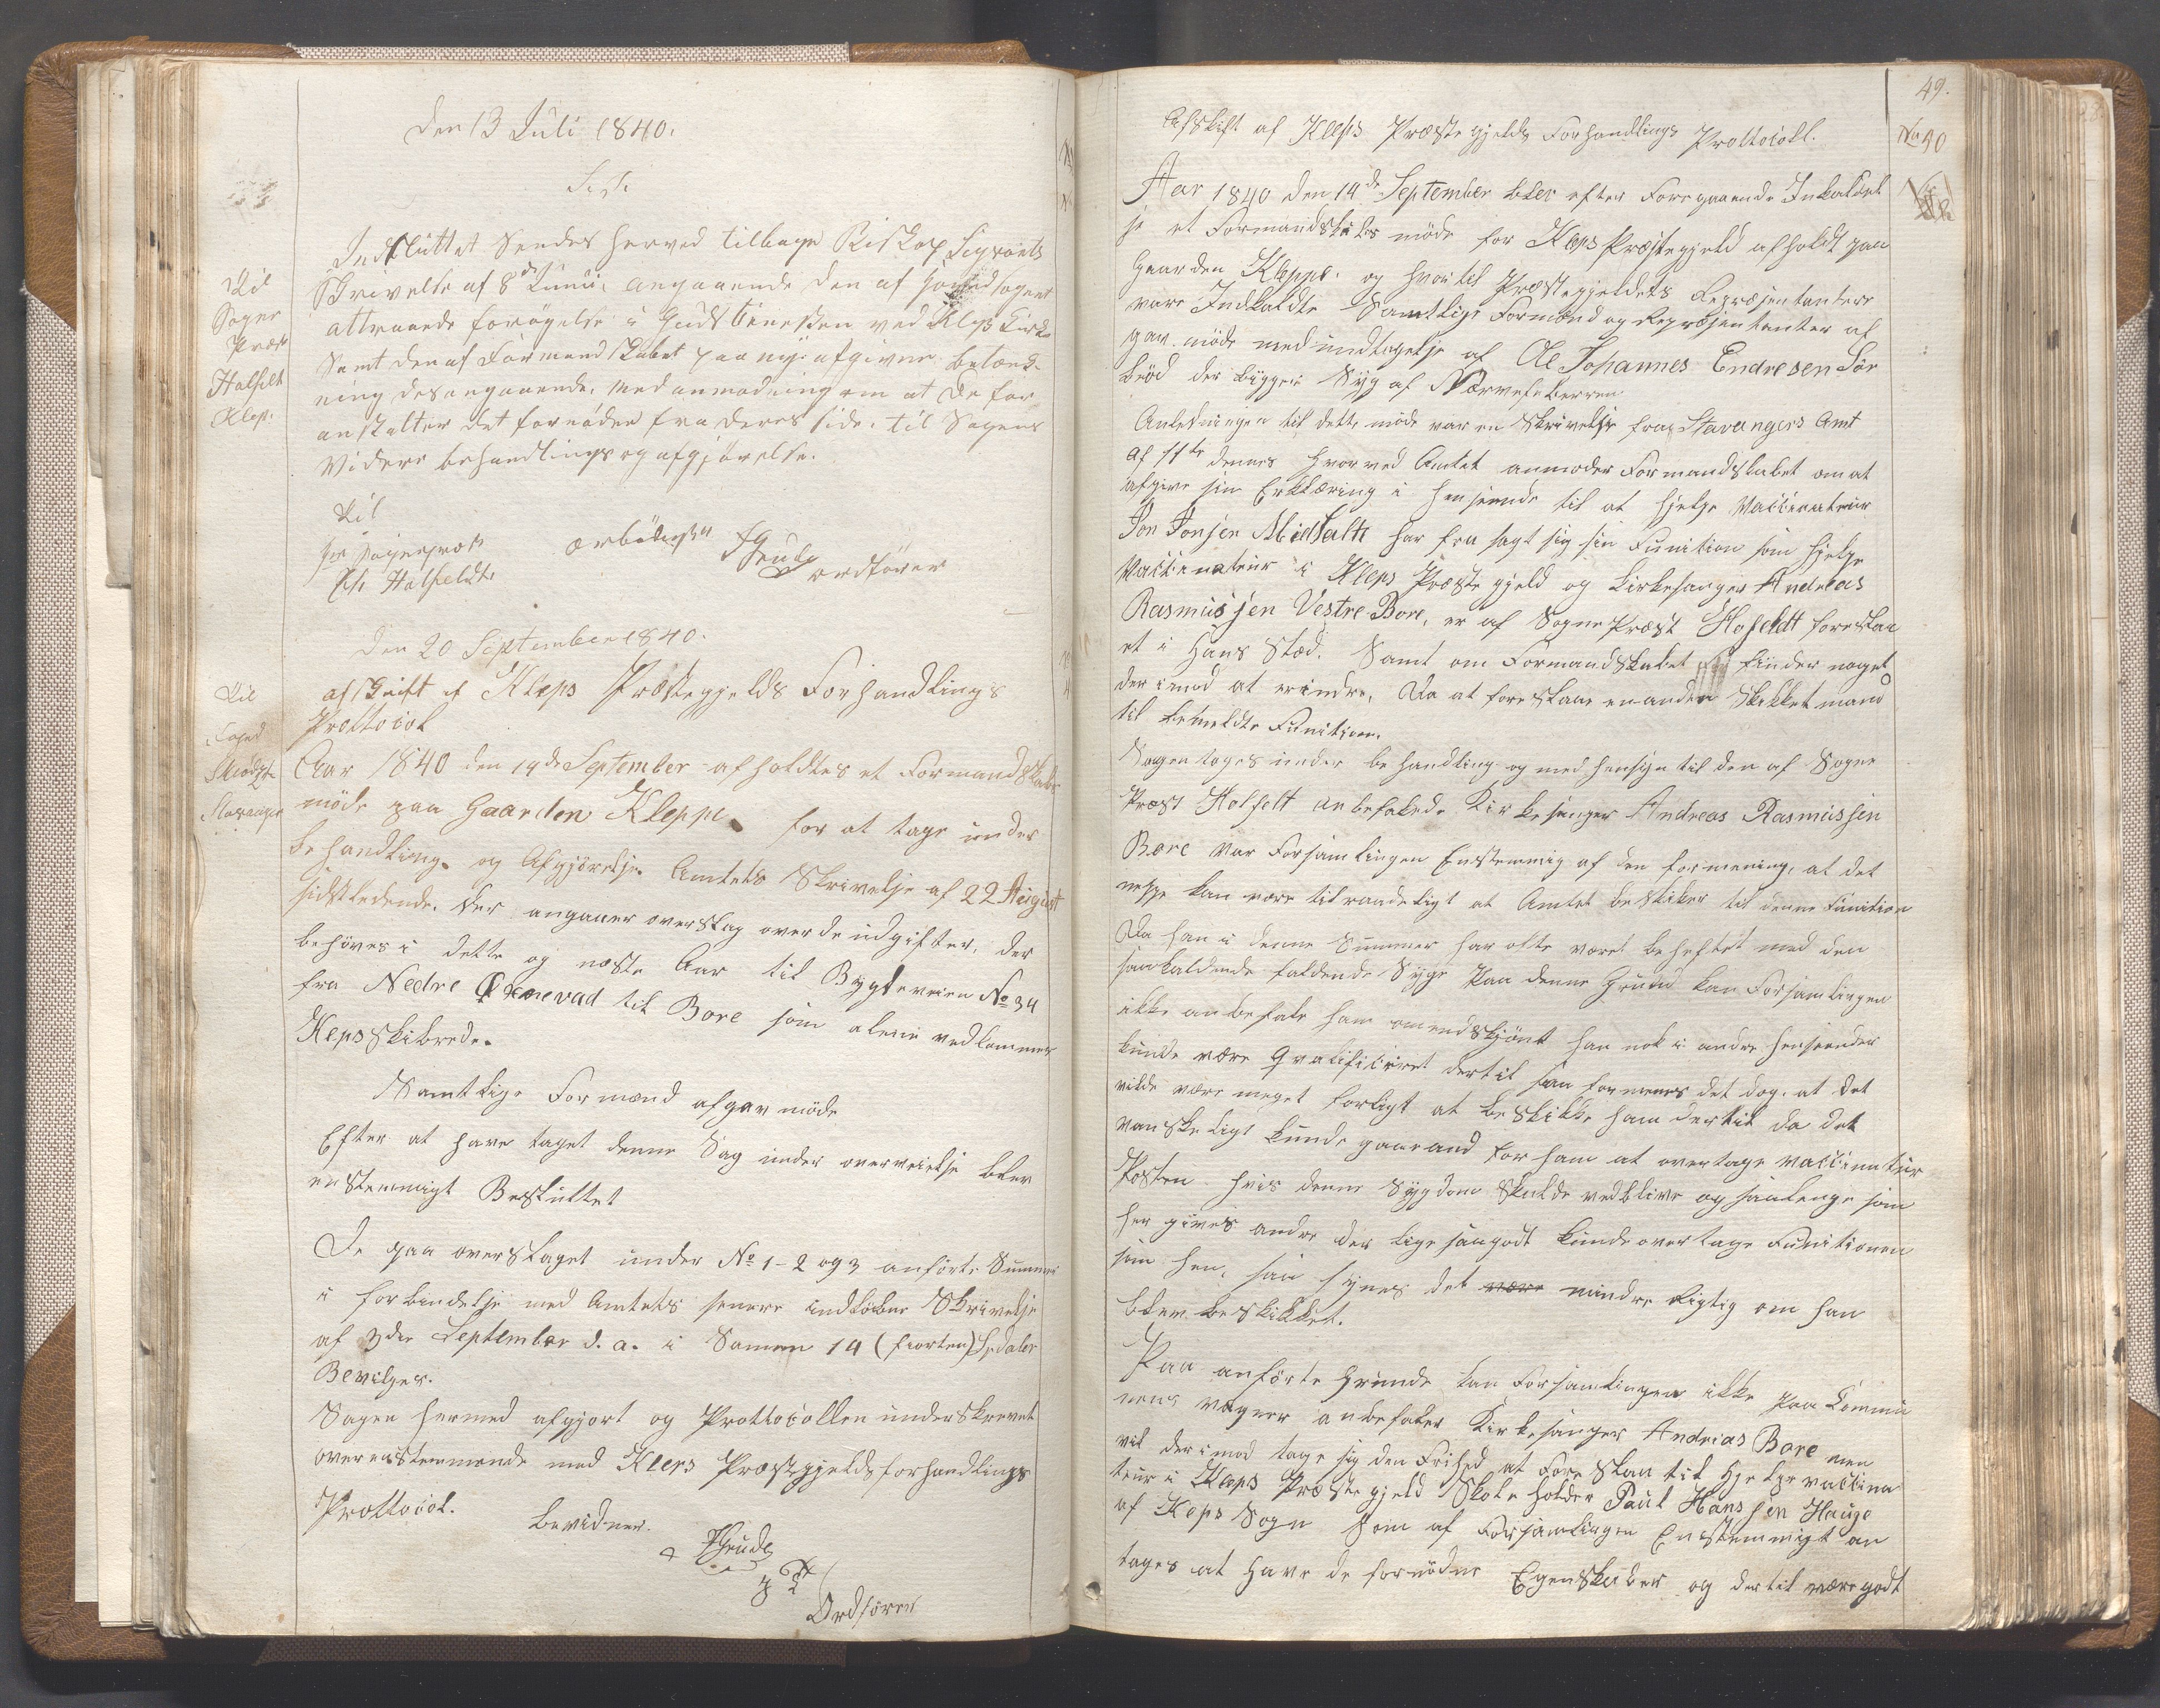 Den 13 Juli 1840.
Til
Sogne
Præst
Halfeldt
Klep.
Indsluttet Sendes herved tilbage Biskop Sigwarts
Skrivelse af 8de Juni, angaaende den af
attraaede forøgelse i Gudstienesten ved Kleps Kirke
Samt den af Formandskabet paa nye afgivne betænk-
ning desangaaende, med anmodning om at De for
anstalter det fornødne fra deres side, til Sagens
Videre behandlings og afgjørelse.
Til
Hr Sognepræst
Halfeldt
ærbødigst
Grude
ordfører
Den 20 September 1840.
Til
Foged
Stavanger
afskrift af Kleps Præstegjelds Forhandlings
Prottocol
Aar 1840 den 14de September afholdtes et Formandskabs
møde paa Gaarden Kleppe for at tage under
behandling og Afgjørelse Amtets Skrivelse af 22 August
sidstledende. der angaaer overslag over de udgifter, der
behøves i dette og næste Aar til Bygdeveien No 34
fra Nedre Qvernevad til Bore som alene vedkommer
Kleps Skibrede.
Samtlige Formænd afgav møde
Efter at have taget denne Sag under overveielse blev
enstemmigt Besluttet
De paa overslaget under No 1-2 og 3 anførte Summer
i forbindelse med Amtets senere indløbne Skrivelse
af 3die September d. a. i Samme 14 (fiorten) Spdaler
Bevilges.
Sagen hermed afgjort og Prottocollen underskrevet
overensstemmende med Kleps Præstegjelds forhandlings
Prottocol.
bevidner.
Grude
Ordfører
49.
No 50
Afskift af Kleps Præstegjelds Forhandlings Prottocoll.
Aar 1840 den 14de September blev efter Foregaaende Inkaldel
se et Formandskabs møde for Kleps Præstegjeld afholdt paa
Gaarden Kleppe. og hvortil Præstegjeldets Repræsentantere
vare Indkaldte Samtlige Formænd og Repræsentanter af
gav møde med undtagelse af Ole Johannes Endresen Sør
brød der ligger Syg af Nervefeberen
Anledningen til dette møde var en Skrivelse fra Stavangers Amt
af 11te dennes hvorved Amtet anmoder Formandskabet om at
afgive sin Erklæring i henseende til at hjelpe Vaccinateur
Jon Jonsen Midtalte har fra sagt sig sin Function som hjelpe
Vaccinateur i Kleps Præstegjeld og Kirkesanger Andreas
Rasmussen Vestre Bore, er af SognePræst Hofeldt foreslaa
et i Hans Stæd. Samt om Formandskabet finder noget
derimod at erindre, Da at foreslaae en anden Skikket mand
til bemeldte Function.
Sagen toges under behandling og med hensyn til den af Sogne
Præst Holfelt anbefalede Kirkesanger Andreas Rasmussen
Bore var Forsamlingen Enstemmig af den formening, at det
neppe kan være tilraadeligt at Amtet beskikker til denne Function
Da han i denne Sommer har ofte været beheftet med den
saakaldende faldende Syge Paa denne Grund kan Forsamlingen
ikke anbefale ham omendskjønt han nok i andre henseender
kunde være Qvalificeret dertil saa formenes det dog, at det
vilde være meget farligt at beskikke ham dertil da det
vanskeligt kunde gaae and for ham at overtage vaccinatur
Posten hvis denne Sygdom Skulde vedblive og saalenge som
her gives andre der lige saagodt kunde overtage Functionen
som han, saa synes det være mindre Rigtig om han
blev beskikket.
Paa anførte Grunde kan Forsamlingen ikke paa Commu
nens vegner anbefaler Kirkesanger Andreas Bore men
vil derimod tage sig den Frihed at foreslaa til Hjelpevaccina
teur i Kleps Præstegjeld Skoleholder Paul Hanssen Hauge
af Kleps Sogn som af Forsamlingen Enstemmigt an
tages at Have de fornødne Egenskaber og dertil være godt